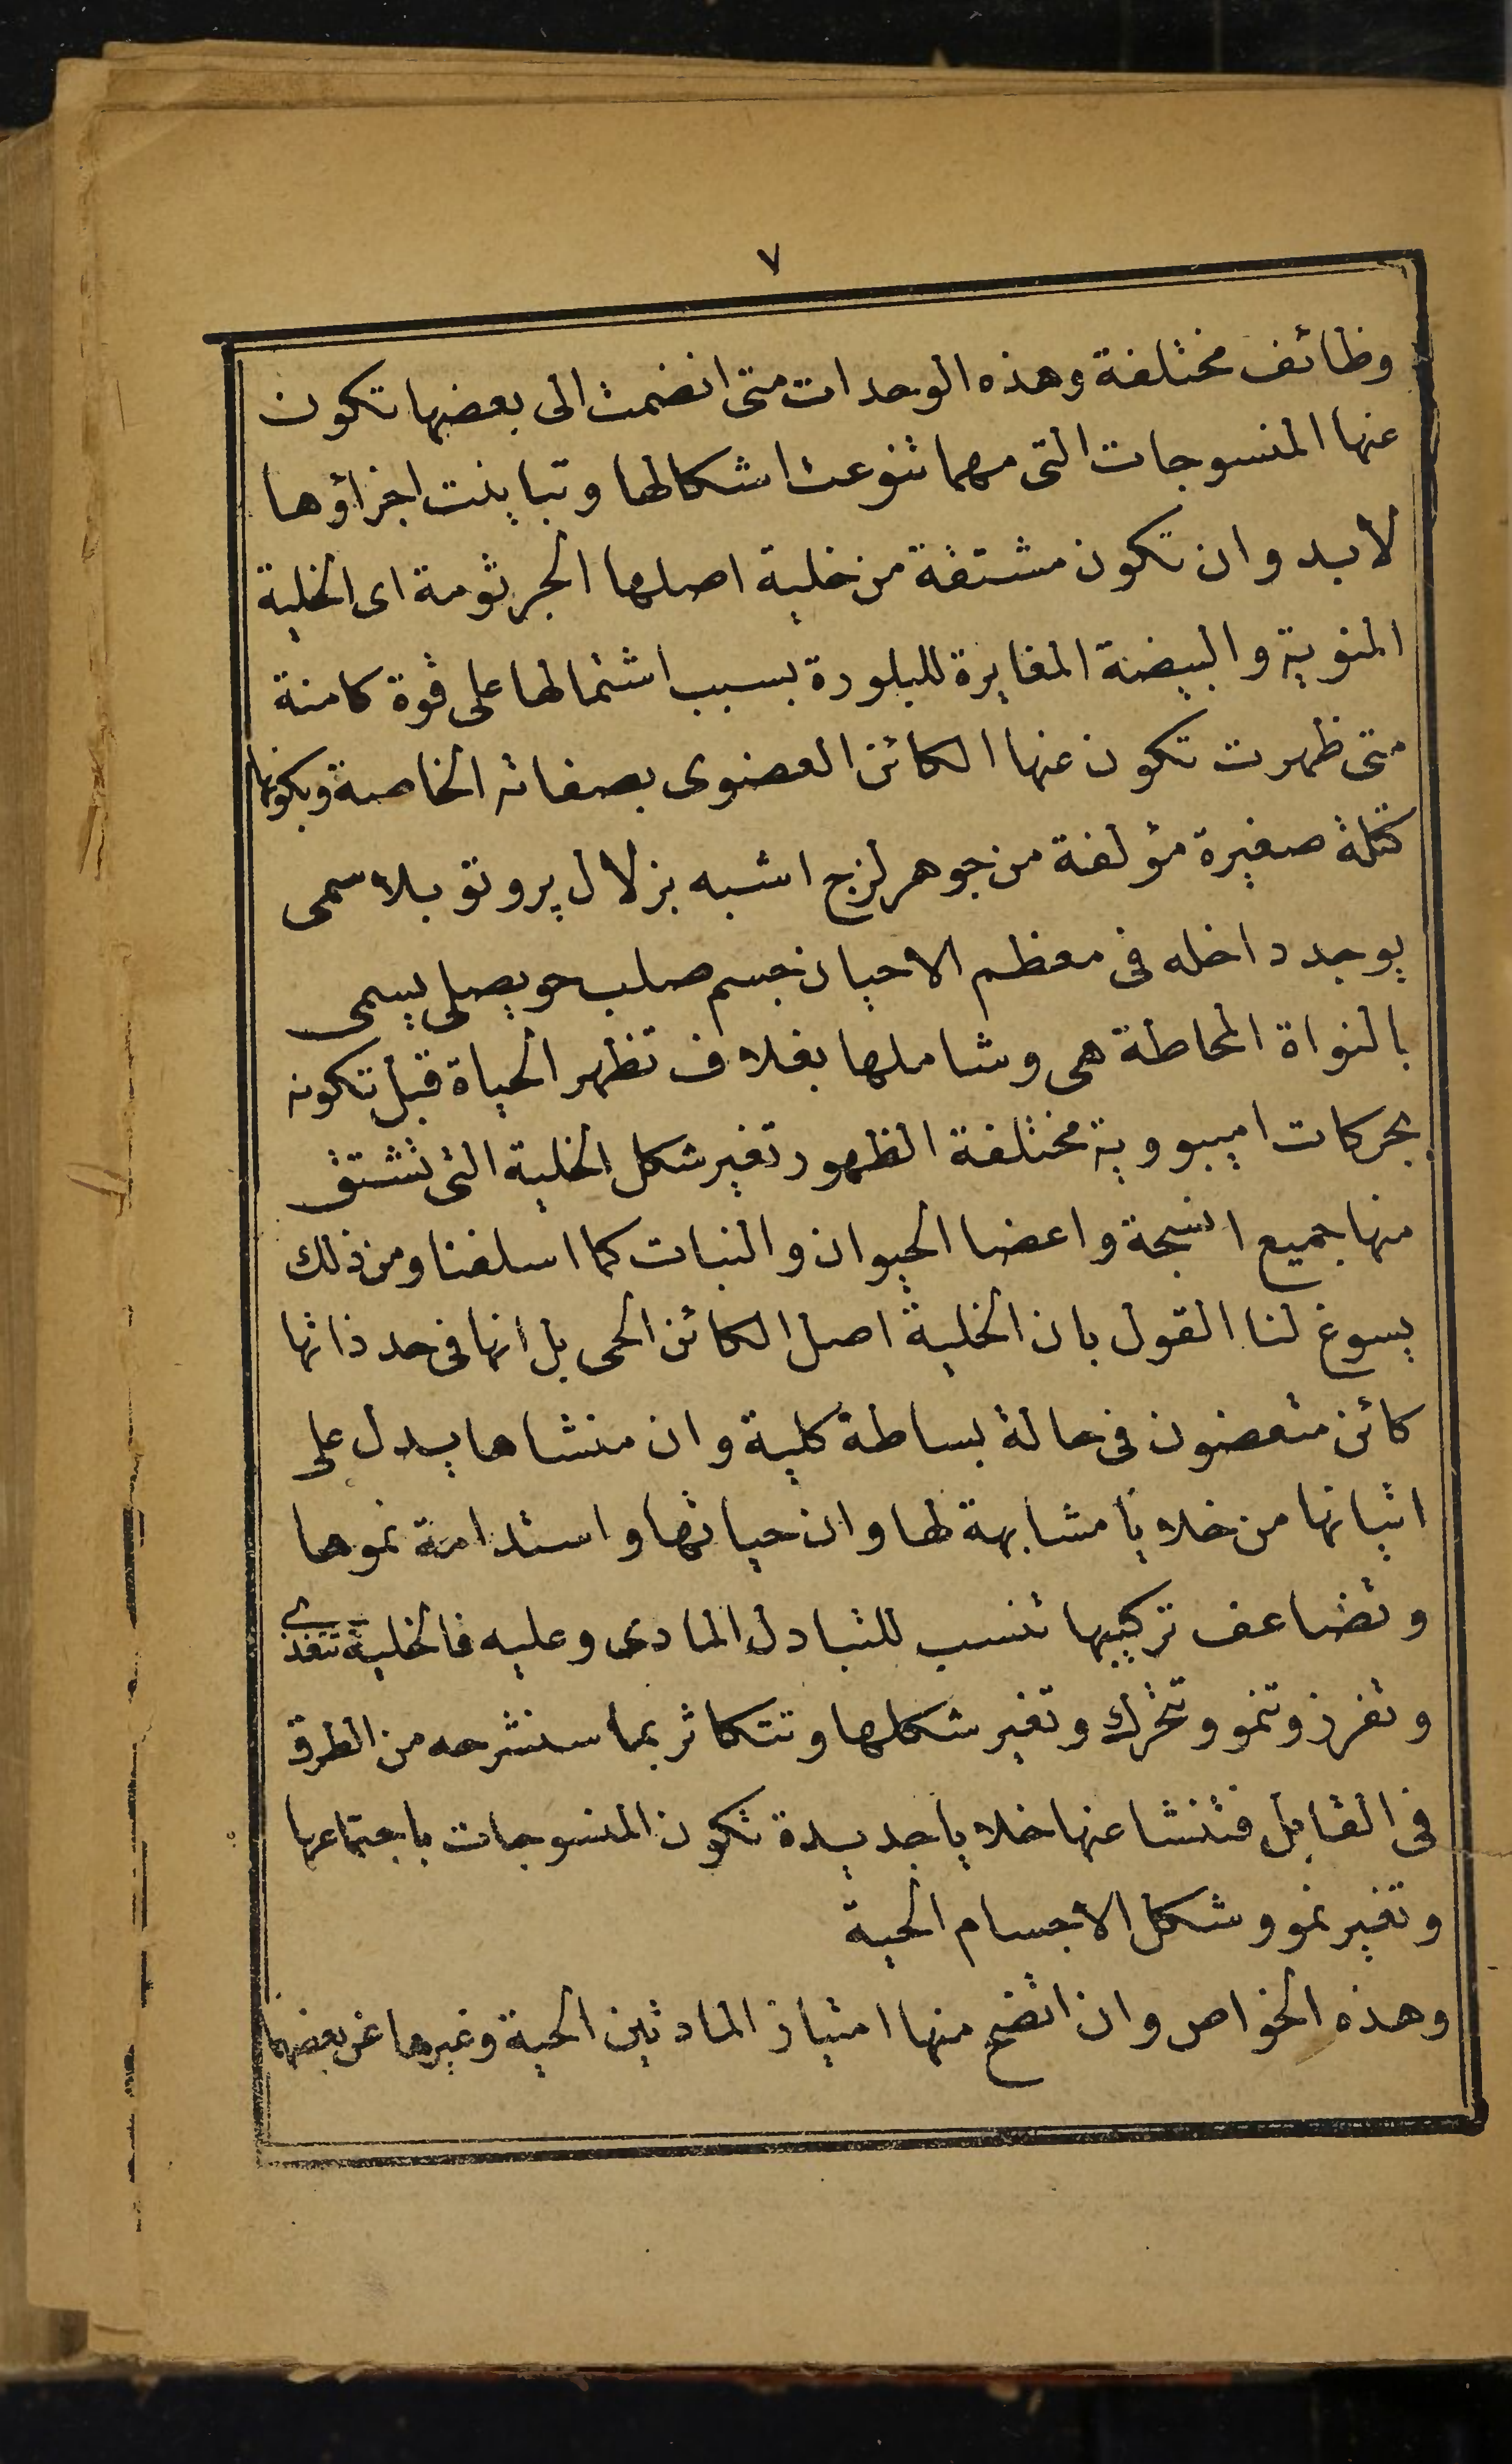 ٧
وظائف مختلفة وهذه الوحدات متى انضمت الى بعضها تكون
عنها المنسوجات التى مهما تنوعت اشكالها وتباينت اجزاؤها
لابد وان تكون مشتقة من خلية اصلها الجرثومة اى الخلية
المنوية والبيضة المغايرة للبلورة بسبب اشتمالها على قوة كامنة
متى ظهرت تكون عنها الكائن العضوى بصفاته الخاصة وبكونها
كتلة صغيرة مؤلفة من جوهر لزج اشبه بزلال پروتوپلاسمى
يوجد داخله فى معظم الاحيان جسم صلب حويصلى يسمى
بالنواة المحاطة هى وشاملها بغلاف تظهر الحياة قبل تكونه
بحركات اميبووية مختلفة الظهور تغير شكل الخلية التى تشتق
منها جميع انسجة واعضا الحيوان والنبات كما اسلفنا ومن ذلك
يسوغ لنا القول بان الخلية اصل الكائن الحى بل انها فى حد ذاتها
كائن متعضون فى حالة بساطة كلية وان منشاها يدل على
اتيانها من خلايا مشابهة لها وان حياتها واستدامة نموها
وتضاعف تركيبها تنسب للتبادل المادى وعليه فالخلية تتغذى
وتفرز وتنمو وتتحرك وتغير شكلها وتتكاثر بما سنشرحه من الطرق
فى القابل فتنشا عنها خلايا جديدة تكون المنسوجات باجتماعها
وتغير نمو وشكل الاجسام الحية
وهذه الخواص وان اتضح منها امتياز المادتين الحية وغيرها عن بعضهما